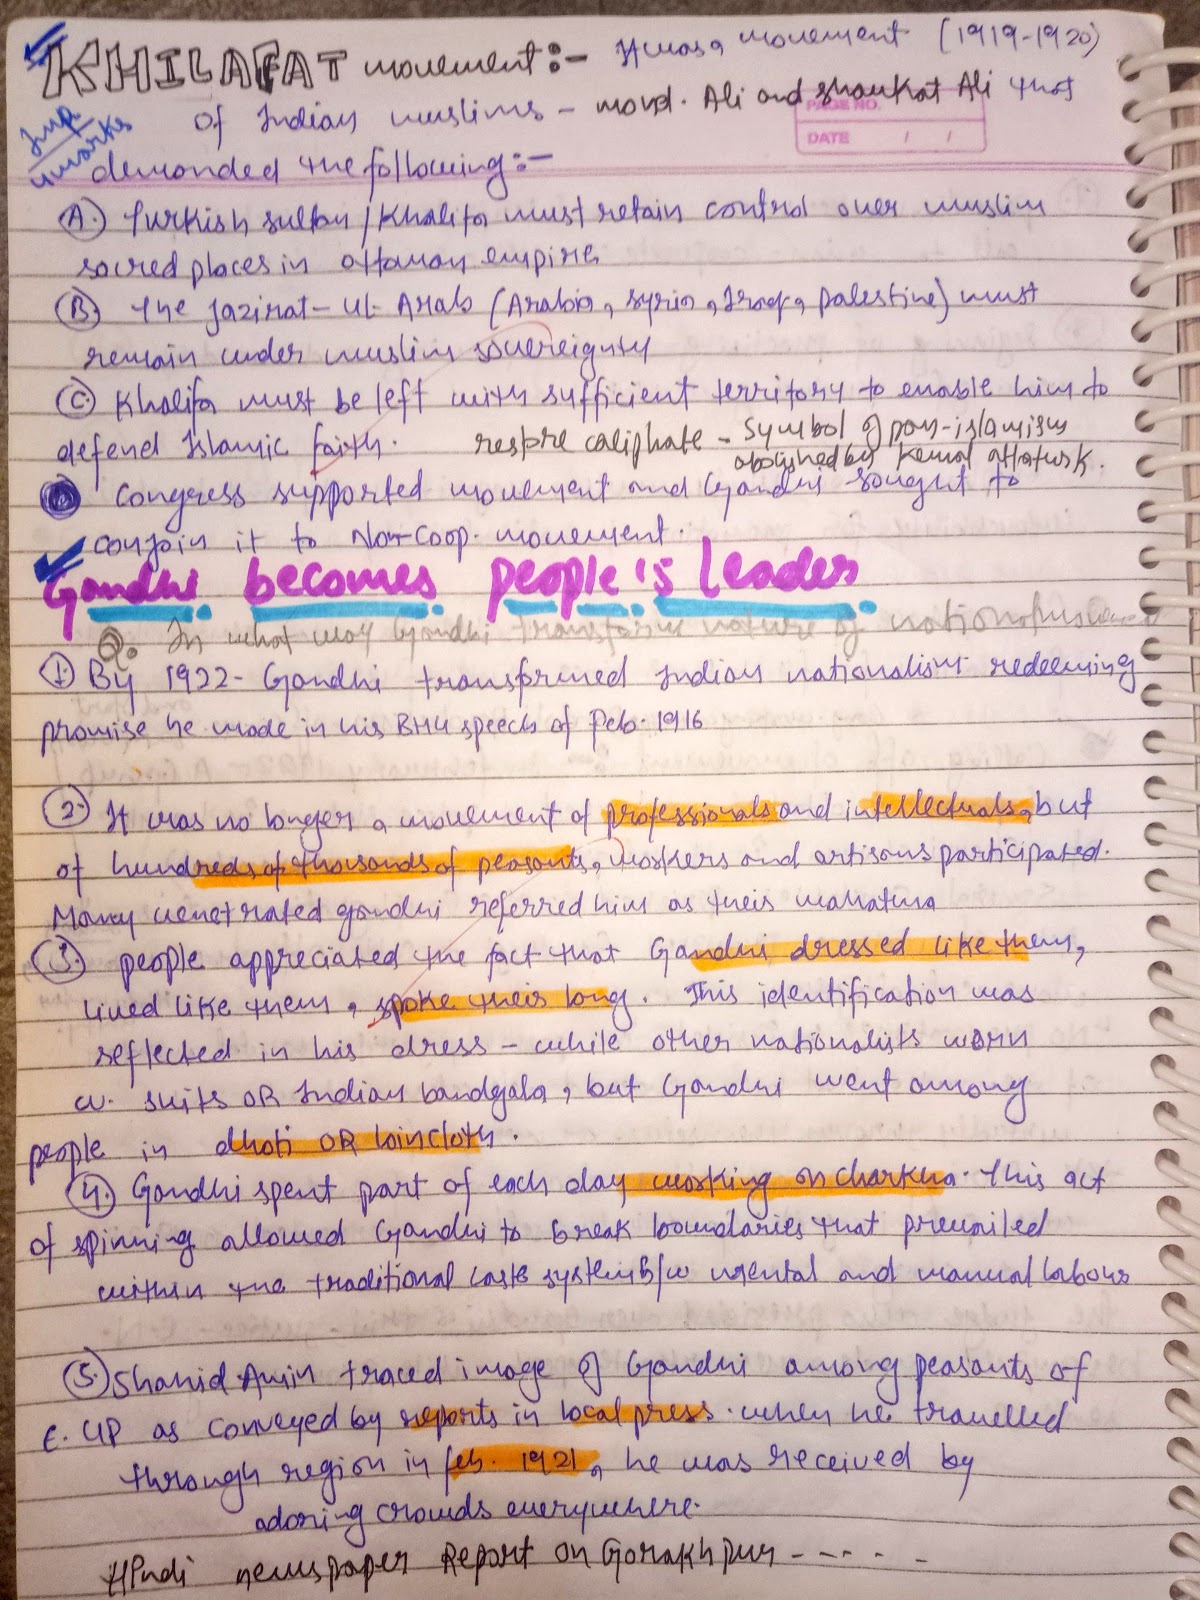 KHILAFAT movement:- It was a movement (1919-1920)
PAGE NO.
DATE / /
Imp
4 marks
of Indian muslims - mohd. Ali and shaukat Ali that
demanded the following:-
(A.) Turkish sultan/Khalifa must retain control over muslim
sacred places in ottoman empire
(B.) The jazirat-ul-Arab (Arabia, Syria, Iraq, palestine) must
remain under muslim sovereignty
(C.) Khalifa must be left with sufficient territory to enable him to
defend Islamic faith. restore caliphate - symbol of pan-islamism
abolished by Kemal attaturk.
Congress supported movement and Gandhi sought to
conjoin it to Non-Coop. movement.
Gandhi becomes people's leader
Q. In what way Gandhi transform nature of
(1.) By 1922- Gandhi transformed Indian nationalism redeeming
promise he made in his BHU speech of Feb. 1916
(2.) It was no longer a movement of professionals and intellectuals, but
of hundreds of thousands of peasants, workers and artisans participated.
Many venetrated gandhi referred him as their mahatma
(3.) people appreciated the fact that Gandhi dressed like them,
lived like them, spoke their lang. This identification was
reflected in his dress - while other nationalists worn
w. suits OR Indian bandgala, but Gandhi went among
people in dhoti OR loincloth.
(4.) Gandhi spent part of each day working on charkha. This act
of spinning allowed Gandhi to break boundaries that prevailed
within the traditional caste system b/w mental and manual labour
(5.) Shahid Amin traced image of Gandhi among peasants of
E. UP as conveyed by reports in local press. when he travelled
through region in feb. 1921, he was received by
adoring crowds everywhere.
HPndi newspaper Report on Gorakhpur - - - - - -